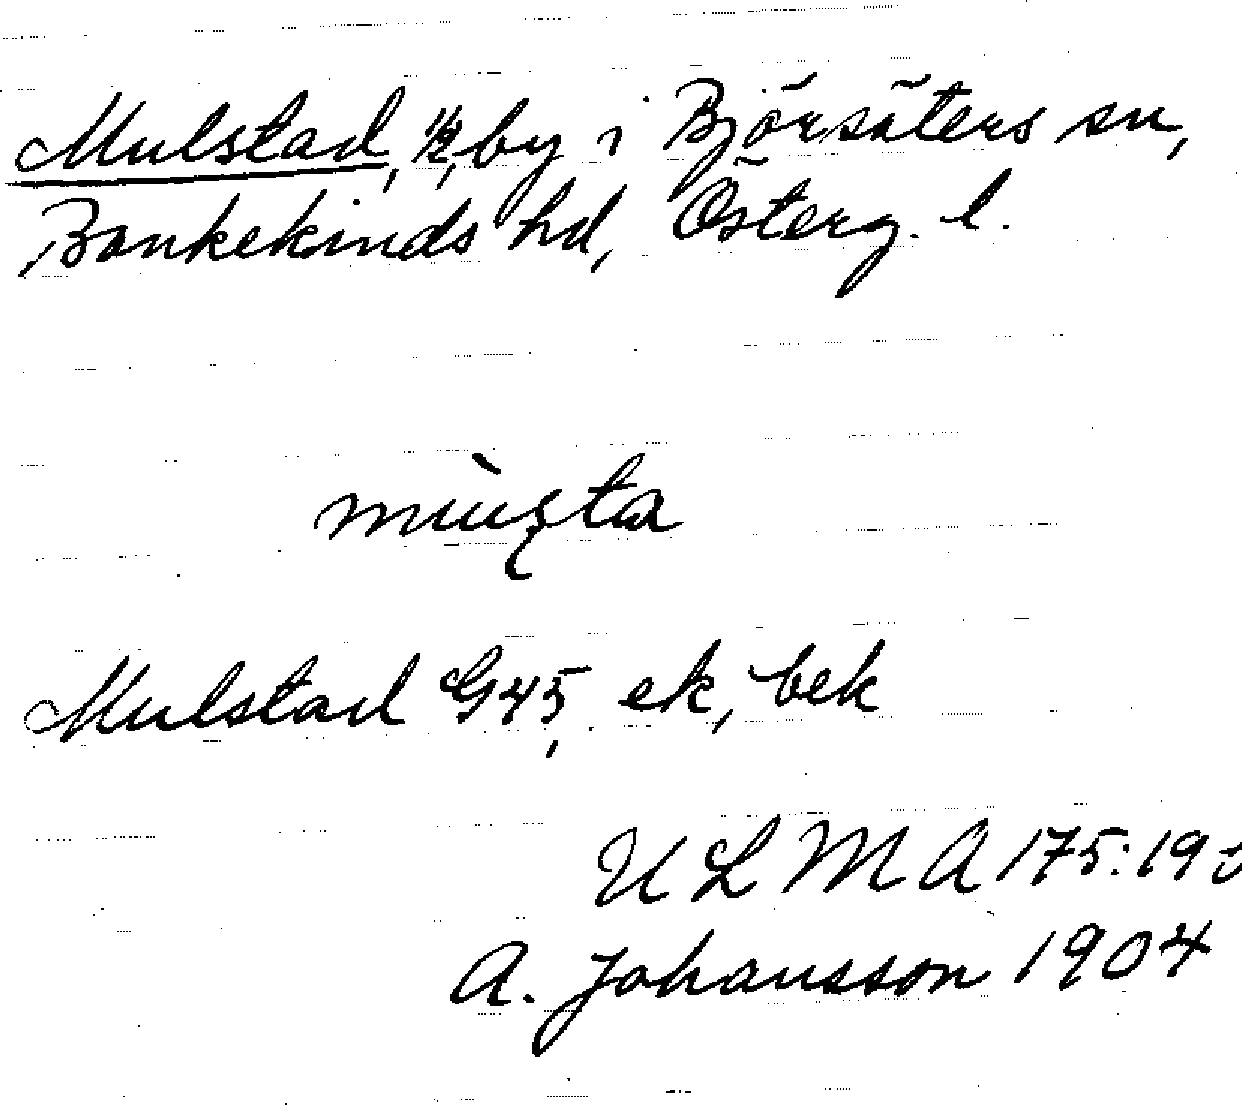 Mulstad, ½, by i Björsäters sn,
Bankekinds hd, Österg. l.
Mulstad G45, ek, bek
ULMA 175:19
A. Johansson 1904